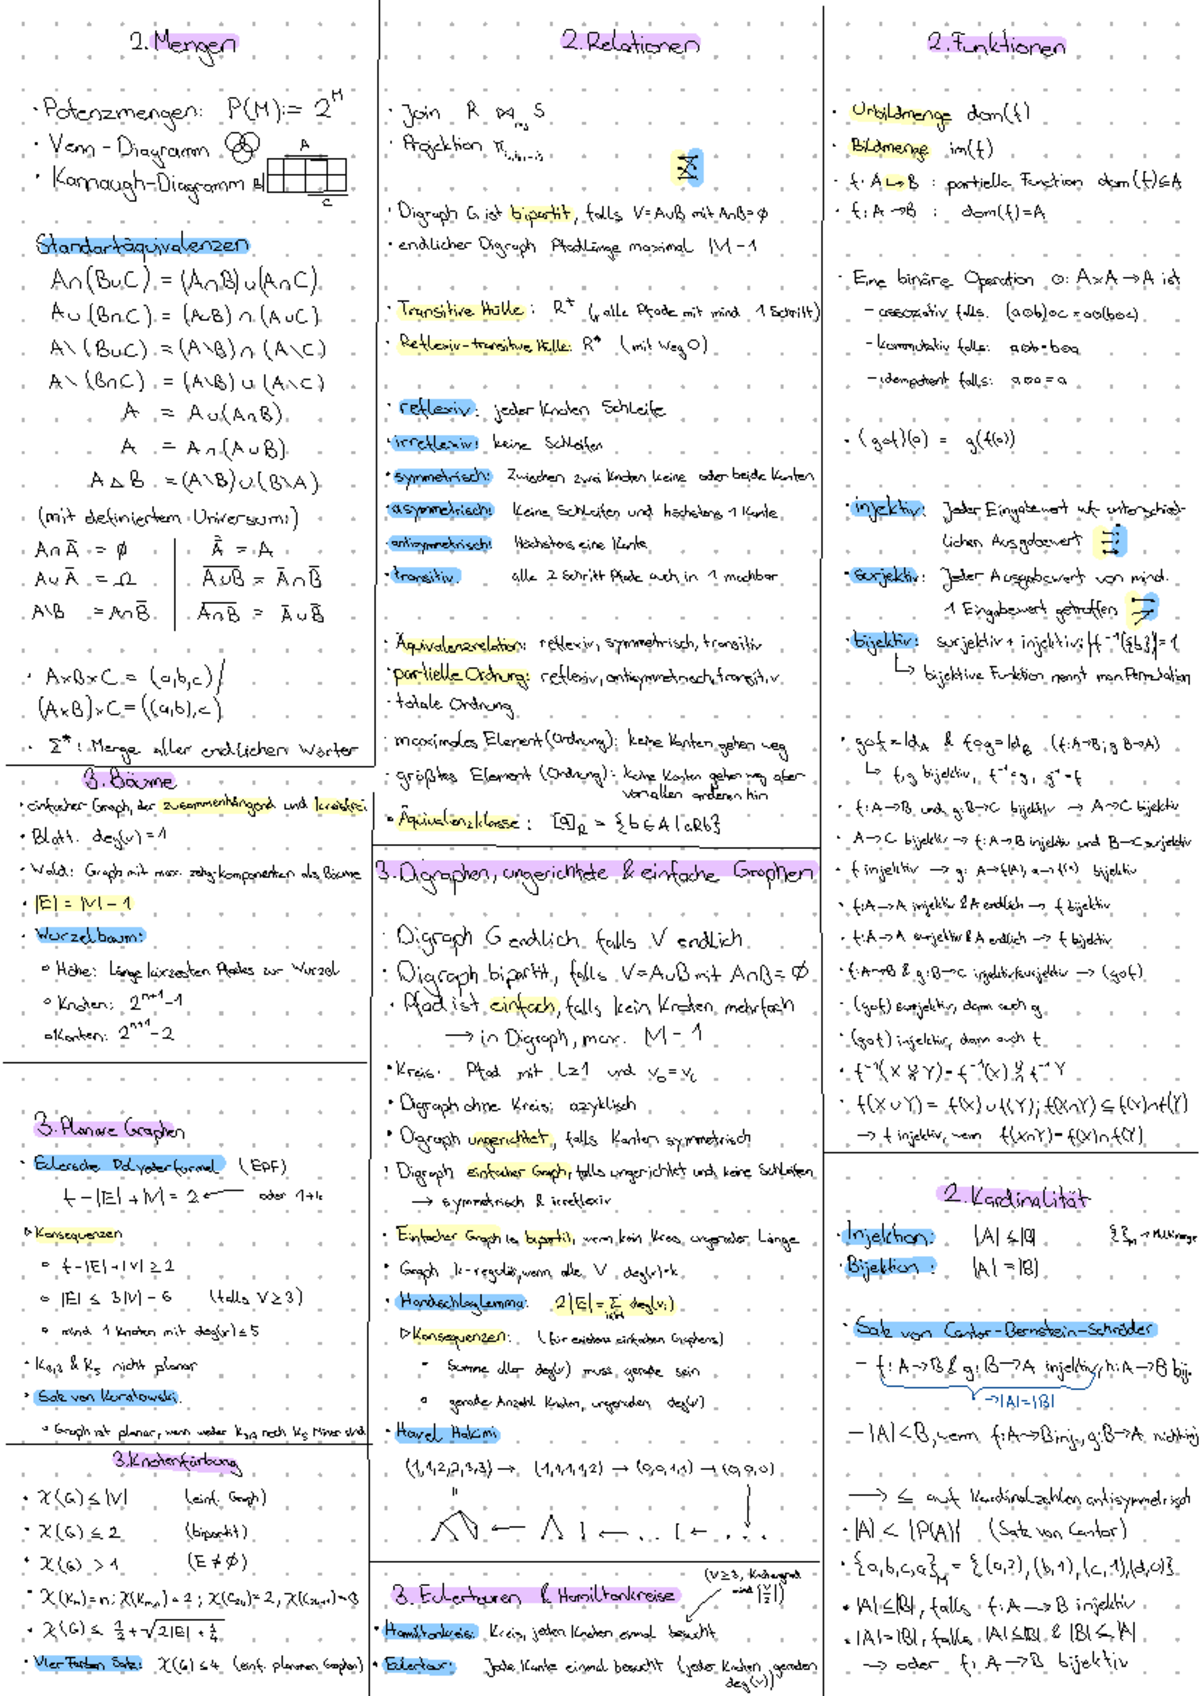 2. Mengen
· Potenzmengen: P(M):= 2^M
· Venn-Diagramm
· Karnaugh-Diagramm B
A
C
Standartäquivalenzen
A∩(B∪C) = (A∩B)∪(A∩C)
A∪(B∩C) = (A∪B)∩(A∪C)
A\(B∪C) = (A\B)∩(A\C)
A\(B∩C) = (A\B)∪(A\C)
A = A∪(A∩B)
A = A∩(A∪B)
A△B = (A\B)∪(B\A)
(mit definiertem Universum:)
A∩A̅ = ∅ | A̿ = A
A∪A̅ = Ω | \overline{A∪B} = A̅∩B̅
A\B = A∩B̅ | \overline{A∩B} = A̅∪B̅
· A×B×C = (a,b,c) /
(A×B)×C = ((a,b),c)
· Σ*: Menge aller endlichen Wörter
3. Bäume
· einfacher Graph, der zusammenhängend und kreisfrei
· Blatt: deg(v)=1
· Wald: Graph mit max. zshg. komponenten als Bäume
· |E| = |V| - 1
· Wurzelbaum:
∘ Höhe: Länge längsten Pfades zur Wurzel
∘ Knoten: 2^{n+1}-1
∘ Kanten: 2^{n+1}-2
3. Planare Graphen
· Eulersche Polyederformel (EPF)
f - |E| + |V| = 2 ← oder 1+k
▷ Konsequenzen
∘ f - |E| + |V| ≥ 2
∘ |E| ≤ 3|V| - 6 (falls V≥3)
∘ mind 1 Knoten mit deg(v) ≤ 5
· K3,3 & K5 nicht planar
· Satz von Kuratowski:
∘ Graph ist planar, wenn weder K3,3 noch K5 Minor sind
3. Knotenfärbung
· χ(G) ≤ |V| (einf. Graph)
· χ(G) ≤ 2 (bipartit)
· χ(G) > 1 (E ≠ ∅)
· χ(Kn) = n; χ(Km,n) = 2; χ(C2n) = 2, χ(C2n+1) = 3
· χ(G) ≤ 1/2 + √(2|E| + 1/4)
· Vier Farben Satz: χ(G) ≤ 4 (einf. planaren Graphen)
2. Relationen
· Join R ⋈ S
· Projektion π
· Digraph G ist bipartit, falls V=A∪B mit A∩B=∅
· endlicher Digraph Pfadlänge maximal |V|-1
· Transitive Hülle: R⁺ (alle Pfade mit mind 1 Schritt)
· Reflexiv-transitive Hülle: R* (mit Weg 0)
· reflexiv: jeder Knoten Schleife
· irreflexiv: keine Schleifen
· symmetrisch: Zwischen zwei Knoten keine oder beide Kanten
· asymmetrisch: Keine Schleifen und höchstens 1 Kante
· antisymmetrisch: Höchstens eine Kante
· transitiv: alle 2 Schritt Pfade auch in 1 machbar
· Äquivalenzrelation: reflexiv, symmetrisch, transitiv
· partielle Ordnung: reflexiv, antisymmetrisch, transitiv
· totale Ordnung
· maximales Element (Ordnung): keine Kanten gehen weg
· größtes Element (Ordnung): keine Kanten gehen weg aber
von allen anderen hin
· Äquivalenzklasse: [a]_R = {b∈A | aRb}
3. Digraphen, ungerichtete & einfache Graphen
· Digraph G endlich falls V endlich
· Digraph bipartit, falls V=A∪B mit A∩B=∅
· Pfad ist einfach, falls kein Knoten mehrfach
→ in Digraph, max. |V|-1
· Kreis: Pfad mit l≥1 und v₀=vₗ
· Digraph ohne Kreis: azyklisch
· Digraph ungerichtet, falls Kanten symmetrisch
· Digraph einfacher Graph, falls ungerichtet und keine Schleifen
→ symmetrisch & irreflexiv
· Einfacher Graph is bipartit, wenn kein Kreis ungerader Länge
· Graph k-regulär, wenn alle V deg(v)=k
· Handschlaglemma: 2|E| = Σ deg(vᵢ)
▷ Konsequenzen: (für existenz einfachen Graphens)
∘ Summe aller deg(v) muss gerade sein
∘ gerade Anzahl Knoten, ungeraden deg(v)
· Havel Hakimi
(1,1,2,2,3,3) → (1,1,1,1,2) → (0,0,1,1) → (0,0,0)
3. Eulertouren & Hamiltonkreise
(V≥3, Knotengrad
mind |V/2|)
· Hamiltonkreis: Kreis, jeden Knoten einmal besucht
· Eulertour: Jede Kante einmal besucht (jeder Knoten geraden
deg(v))
2. Funktionen
· Urbildmenge dom(f)
· Bildmenge im(f)
· f: A ↪ B : partielle Function dom(f)⊆A
· f: A→B : dom(f)=A
· Eine binäre Operation ⊙: A×A→A ist
- assoziativ falls: (a⊙b)⊙c = a⊙(b⊙c)
- kommutativ falls: a⊙b=b⊙a
- idempotent falls: a⊙a = a
· (g∘f)(a) = g(f(a))
· injektiv: Jeder Eingabewert auf unterschied-
lichen Ausgabewert
· surjektiv: Jeder Ausgabewert von mind.
1 Eingabewert getroffen
· bijektiv: surjektiv + injektiv; |f⁻¹({b})|=1
↳ bijektive Funktion nennt man Permutation
· g∘f=Id_A & f∘g=Id_B (f:A→B; g:B→A)
↳ f,g bijektiv, f⁻¹=g, g⁻¹=f
· f:A→B und g:B→C bijektiv → A→C bijektiv
· A→C bijektiv → f:A→B injektiv und B→C surjektiv
· f injektiv → g: A→f(A), a→f(a) bijektiv
· f:A→A injektiv & A endlich → f bijektiv
· f:A→A surjektiv & A endlich → f bijektiv
· f:A→B & g:B→C injektiv/surjektiv → (g∘f)
· (g∘f) surjektiv, dann auch g
· (g∘f) injektiv, dann auch f
· f⁻¹(X ∪∩ Y) = f⁻¹(x) ∪∩ f⁻¹Y
· f(X∪Y) = f(X)∪f(Y); f(X∩Y) ⊆ f(X)∩f(Y)
→ f injektiv, wenn f(X∩Y)=f(X)∩f(Y)
2. Kardinalität
· Injektion: |A| ≤ |B| {}_M → Multimenge
· Bijektion: |A| = |B|
· Satz von Cantor-Bernstein-Schröder
- f: A→B & g: B→A injektiv, h: A→B bij.
→ |A|=|B|
- |A|<B, wenn f: A→B inj, g: B→A nicht inj
→ ≤ auf Kardinalzahlen antisymmetrisch
· |A| < |P(A)| (Satz von Cantor)
· {a,b,c,a}_M = {(a,2), (b,1), (c,1), (d,0)}
· |A|≤|B|, falls f: A→B injektiv
· |A|=|B|, falls |A|≤|B| & |B|≤|A|
→ oder f: A→B bijektiv